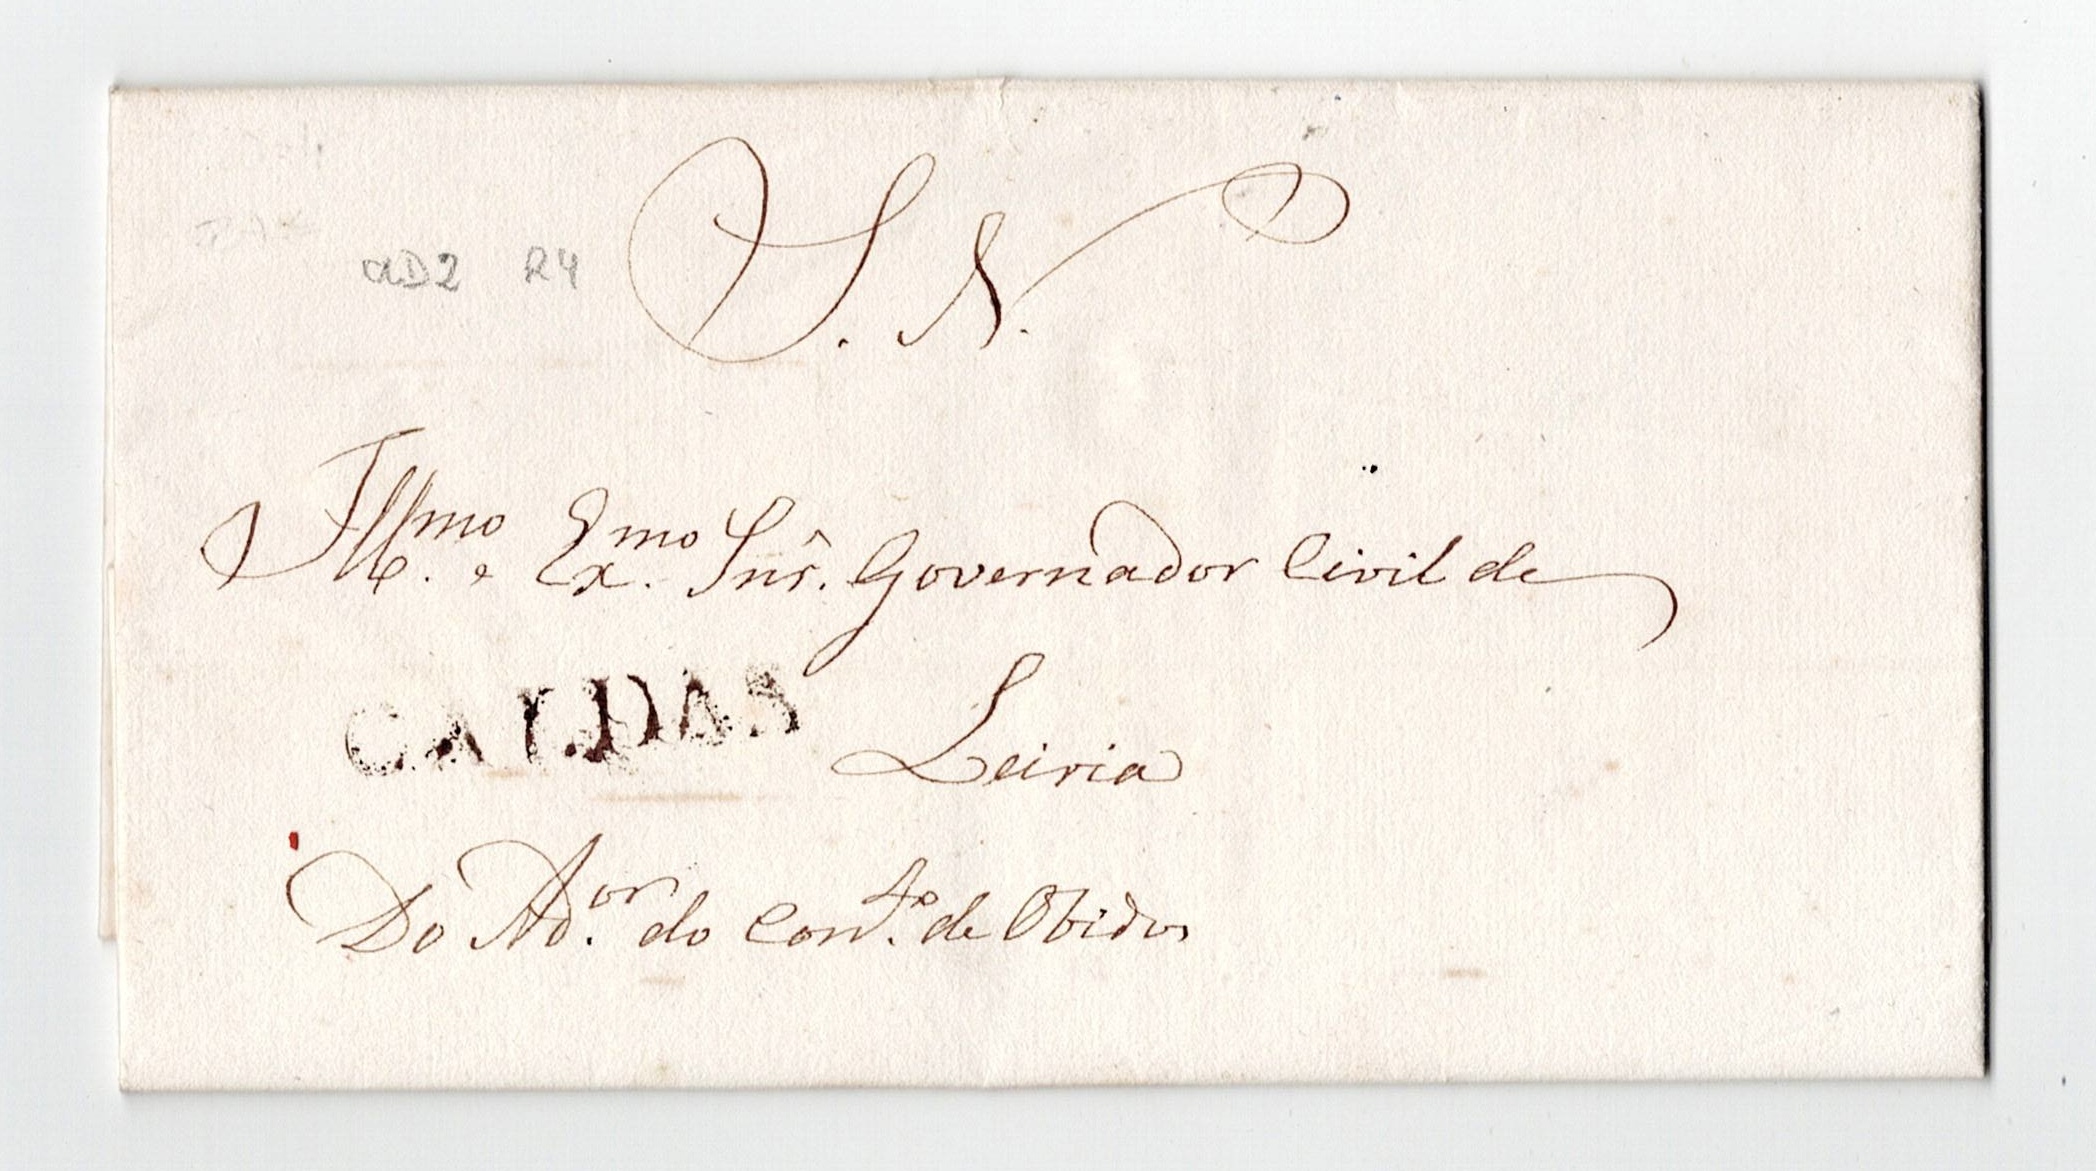 S. N.
aD2 R4
Illmo. e Exmo. Snr. Governador Civil de
CALDAS
Leiria
Do Ador. do Conco. de Obidos